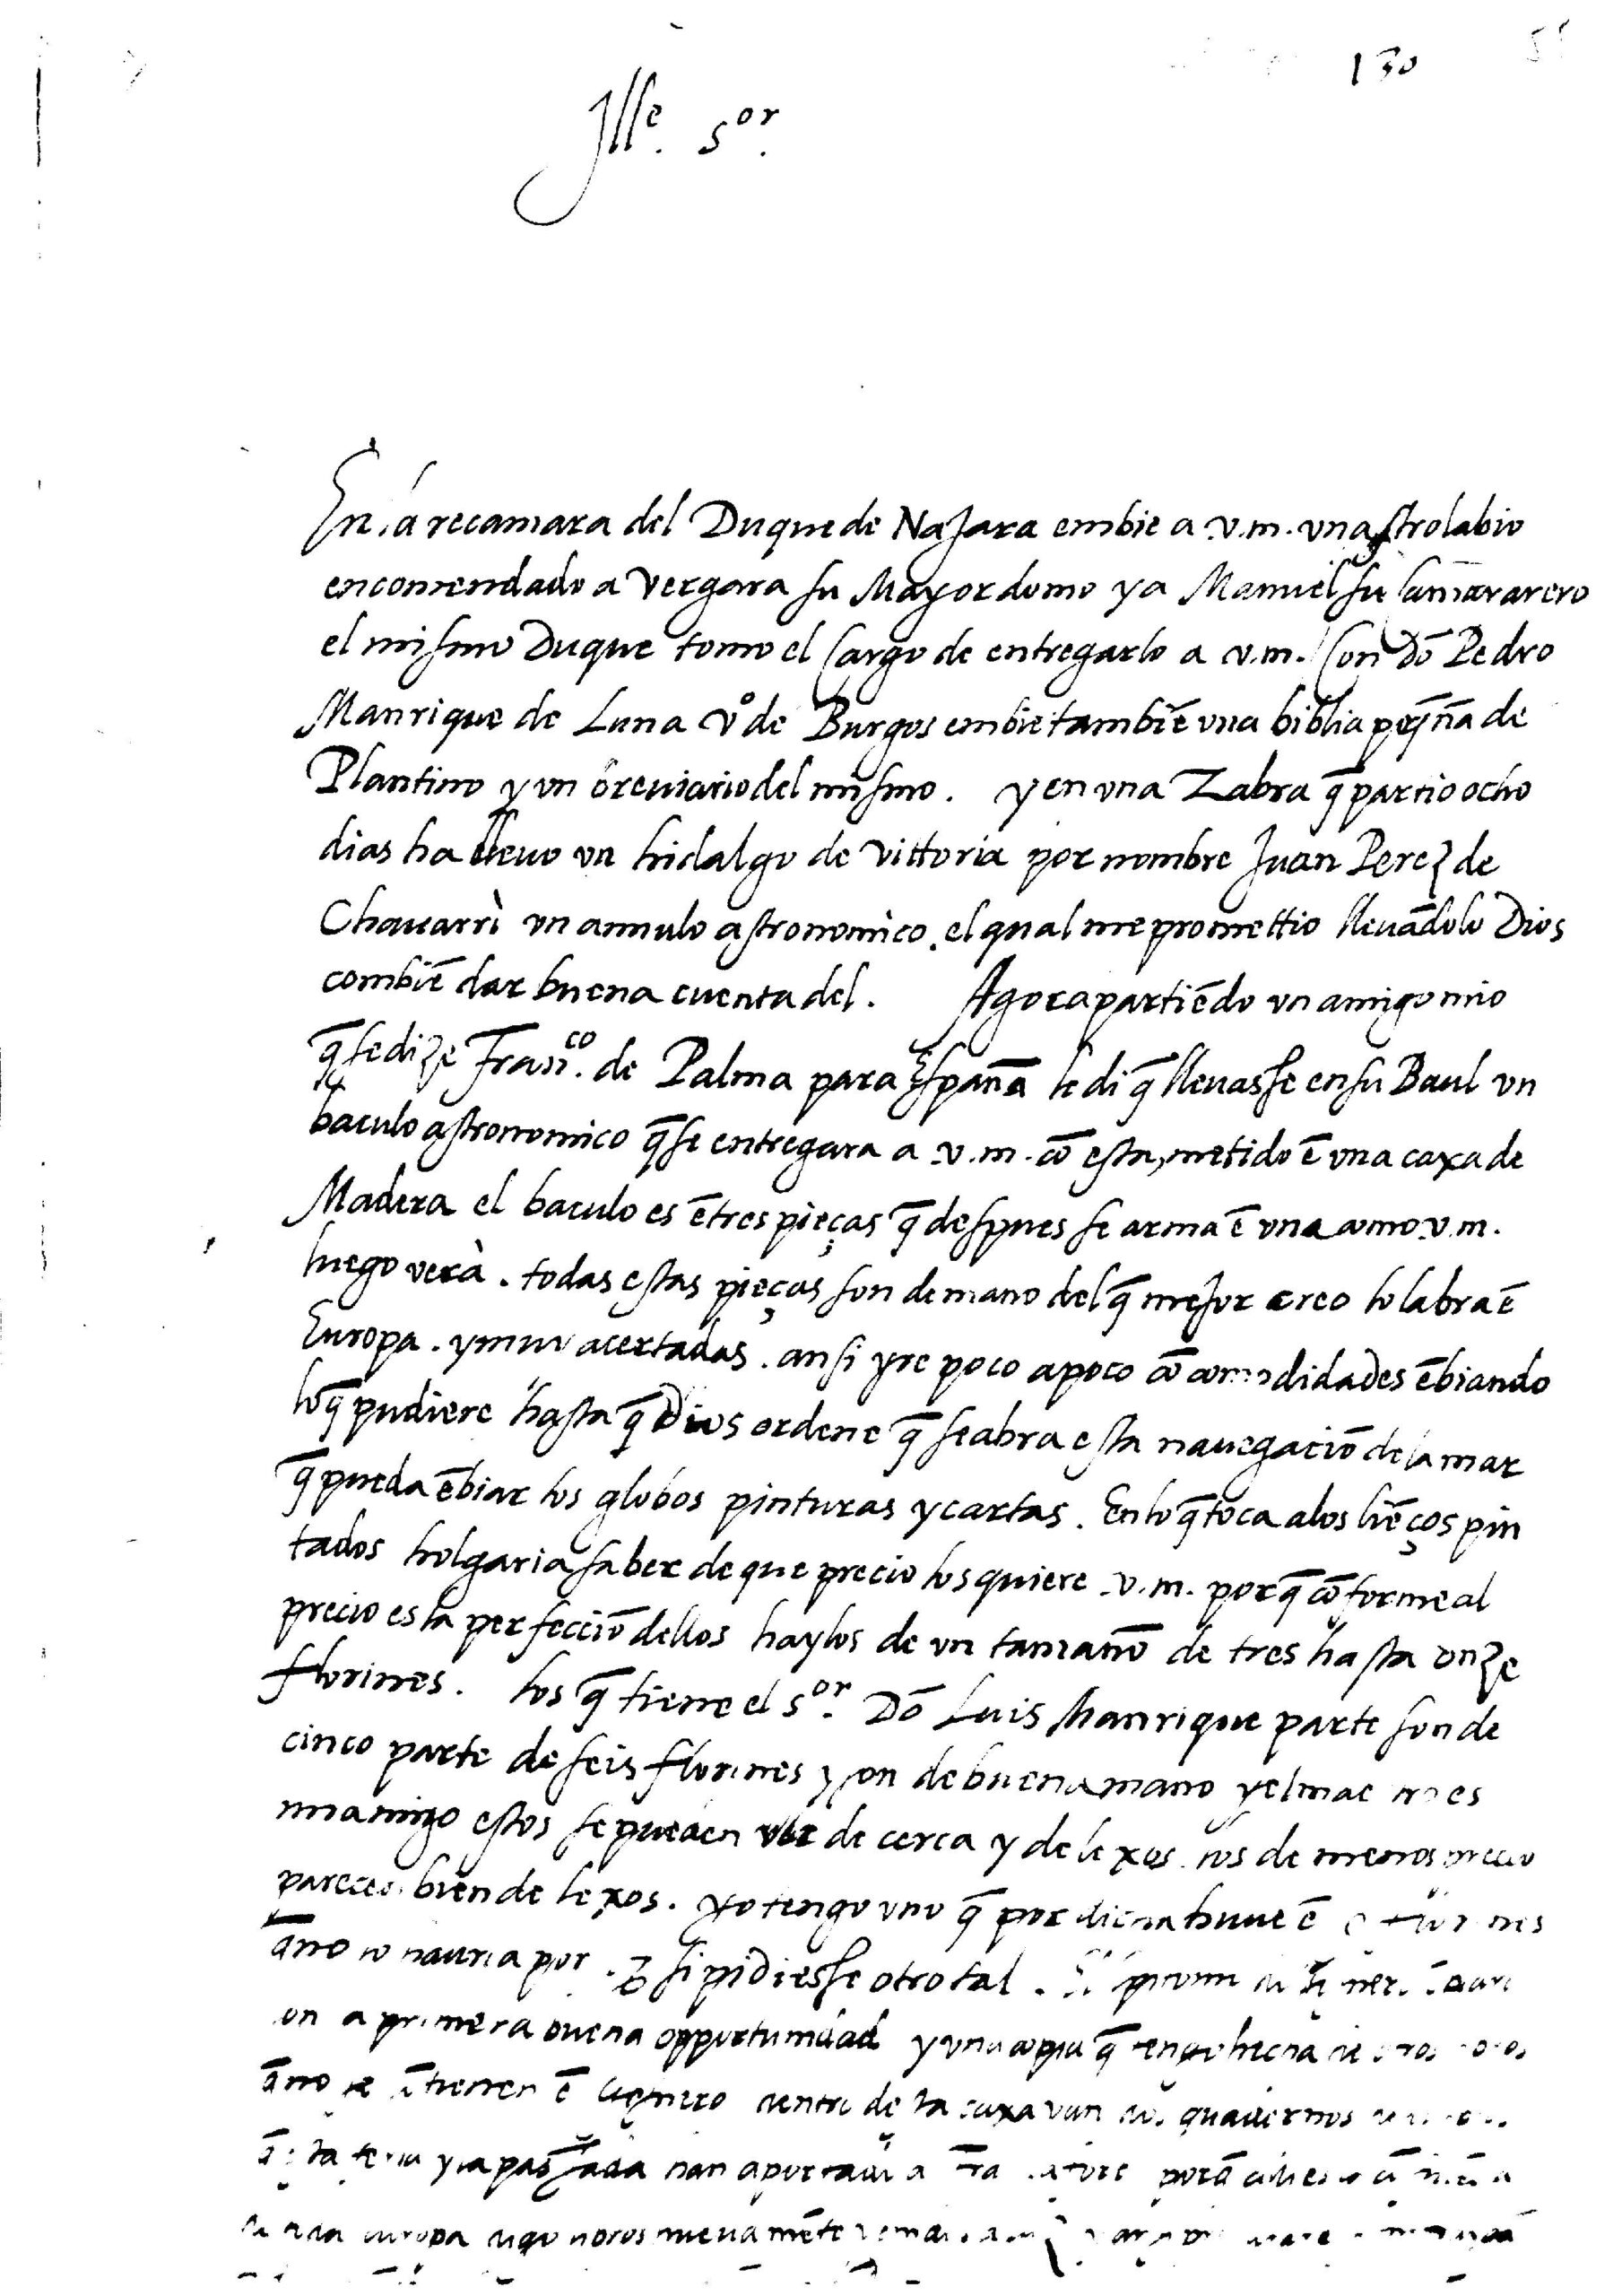 130
Jlle. Sor.
En la recamara del Duque de Najara embie a v.m. un astrolabio
encomendado a Vergara su Mayordomo y a Manuel su camararero
el mismo Duque tomo el cargo de entregarlo a v.m. Con Dō Pedro
Manrique de Luna vº de Burgos embie tambiē una biblia peq̄ña de
Plantino y un breuiario del mismo. y en una Zabra q̄ partio ocho
dias ha lleuo un hidalgo de Vittoria por nombre Juan Perez de
Chauarrì un annulo astronomico. el qual me promettio lleuādolo Dios
com biē dar buena cuenta del. Agora partiēdo un amigo mio
q̄ se dize Franco. de Palma para España le di q̄ lleuasse en su Baul un
baculo astronomico q̄ se entregara a v.m. cō esta, metido ē una caxa de
Madera el baculo es ē tres pieças q̄ despues se arma ē una como v.m.
luego verà. todas estas pieças son de mano del q̄ mejor creo lo labra ē
Europa. y muy acertadas. ansi yre poco a poco cō comodidades ēbiando
lo q̄ pudiere hasta q̄ Dios ordene q̄ se abra esta nauegaciō de la mar
q̄ pueda ēbiar los globos pinturas y cartas. En lo q̄ toca a los liēços pin
tados holgaria saber de que precio los quiere v.m. porq̄ cōforme al
precio es la perfecciō dellos haylos de un tamaño de tres hasta onze
florines. los q̄ tiene el Sor. Dō Luis Manrique parte son de
cinco parte de seis florines y son de buena mano y el mae es
mi amigo estos se pueden ver de cerca y de lexos. los de menos precio
parecen bien de lexos. Yo tengo uno q̄ por dicha huue ē
q̄ no lo hauria por si pidiesse otro tal.
a primera buena opportunidad y una copia q̄ tengo hecha de
q̄ no se ētienen ē dentro de la caxa van quadernos
y la passada han aportado a
Europa nueuamēte